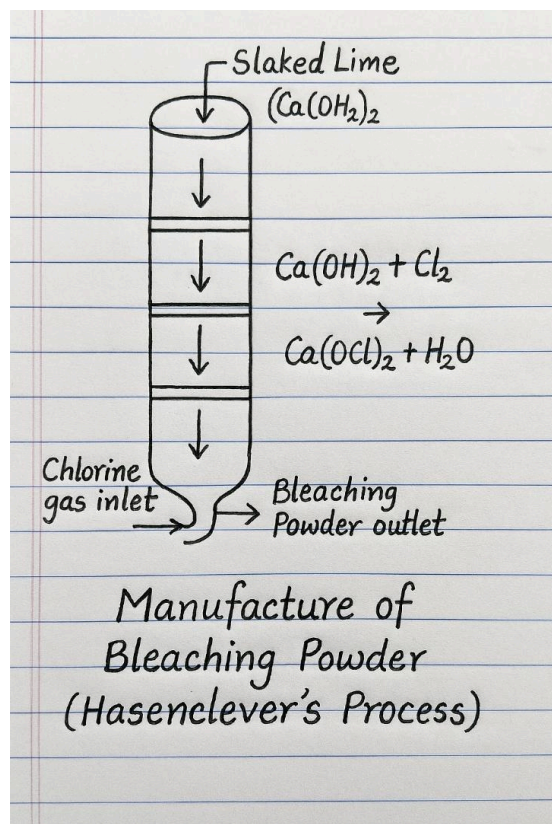 Slaked Lime
(Ca(OH₂)₂
Ca(OH)₂ + Cl₂
→
Ca(OCl)₂ + H₂O
Chlorine
gas inlet
Bleaching
Powder outlet
Manufacture of
Bleaching Powder
(Hasenclever's Process)